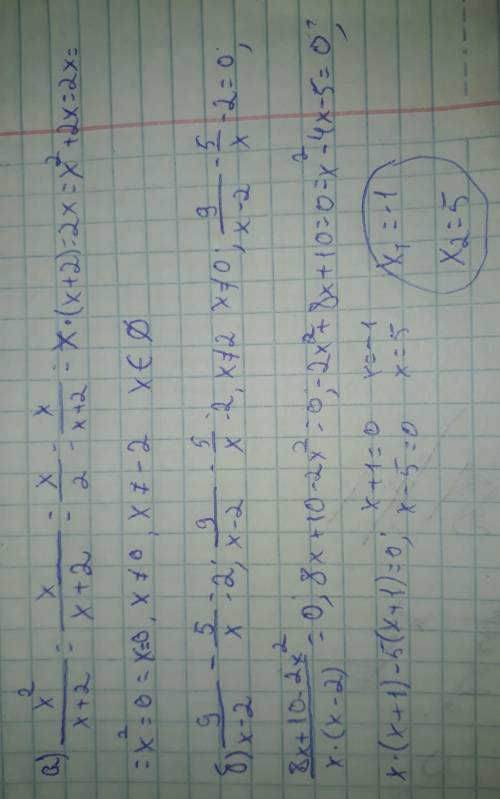 а) x²/(x+2) = x/(x+2) = x/2 = x/(x+2) = x·(x+2) = 2x = x²+2x = 2x =
= x² = 0 = x=0, x≠0, x≠-2 x∈∅
б) 9/(x-2) - 5/x = 2; 9/(x-2) - 5/x = 2, x≠2 x≠0; 9/(x-2) - 5/x - 2 = 0;
(8x+10-2x²)/(x·(x-2)) = 0; 8x+10-2x² = 0; -2x²+8x+10=0 = x²-4x-5=0;
x·(x+1)-5(x+1)=0; x+1=0 x=-1 x₁=-1
x-5=0 x=5 x₂=5